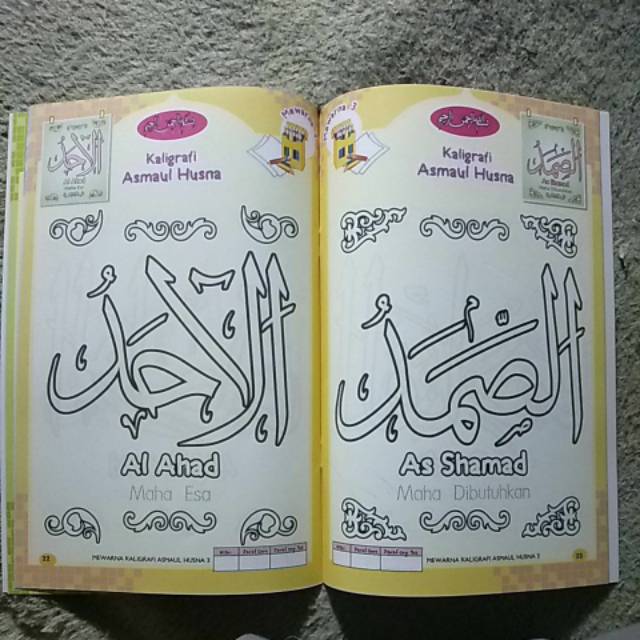 Kaligrafi
Asmaul Husna
الأحد
Al Ahad
Maha Esa
22
MEWARNA KALIGRAFI ASMAUL HUSNA 3
Kaligrafi
Asmaul Husna
الصَّمَدُ
As Shamad
Maha Dibutuhkan
MEWARNA KALIGRAFI ASMAUL HUSNA 3